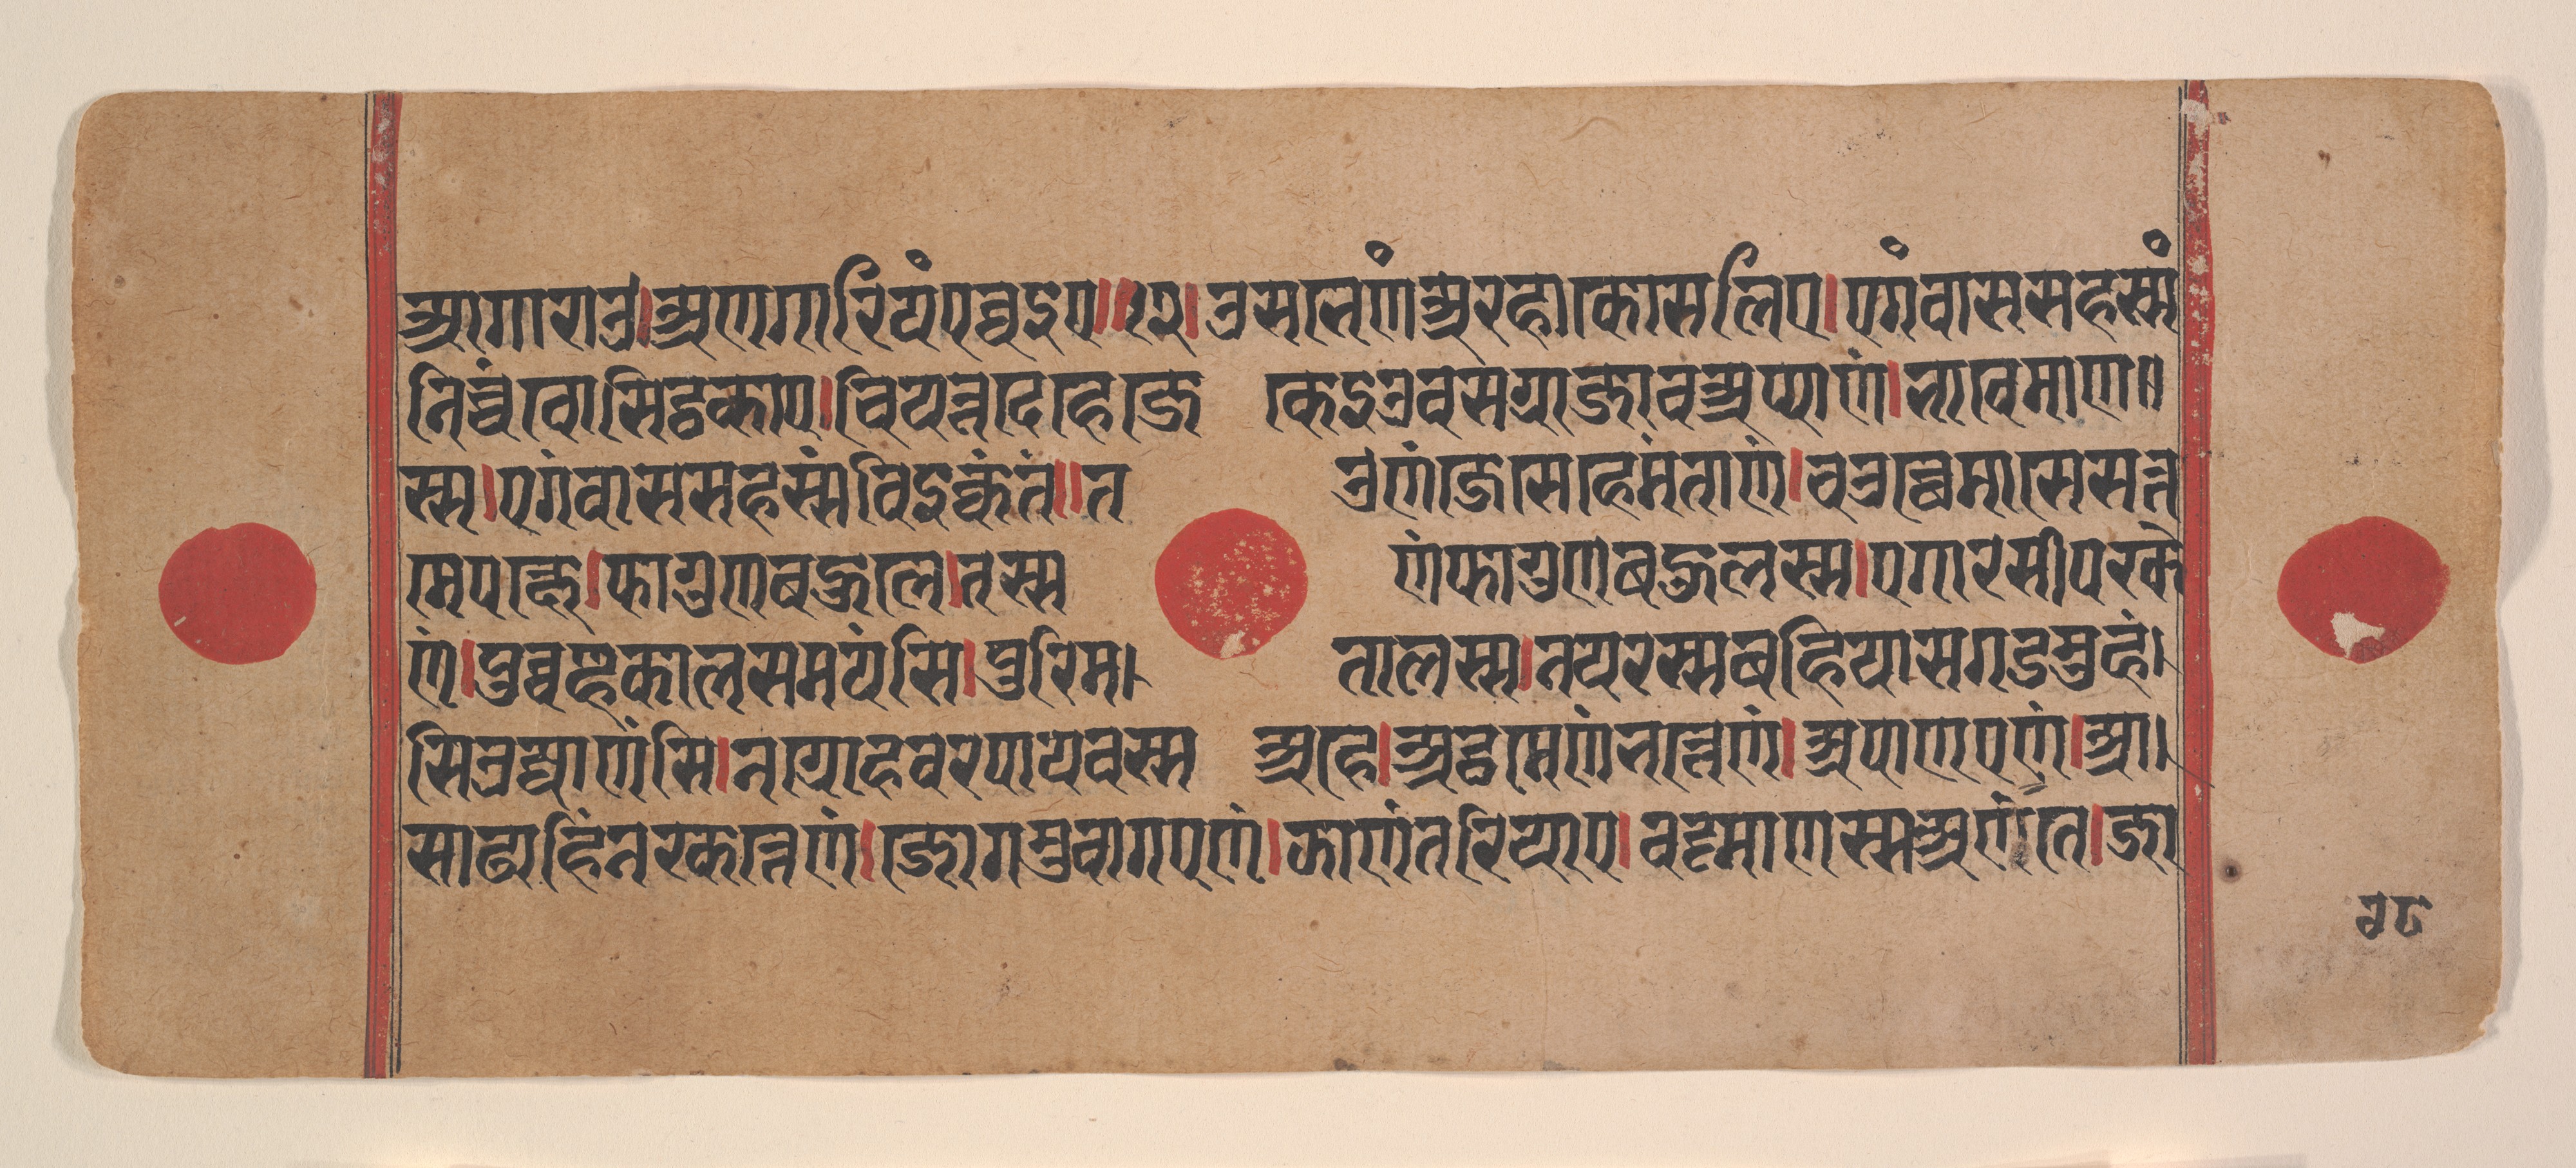 आगाराउ।अणगारियंपव्वइए॥१२।उसभेणंअरहाकोसलिए।एगंवाससहस्सं
निच्चंवोसिट्ठकाए।चियत्तदेहेजे केइउवसग्गाजावअप्पाणं।भावेमाण॥
स्स।एगंवाससहस्संविइक्कंतं॥त उणंजेसेहेमंताणं।चउत्थेमासेसत्त
मेपक्खे।फागुणबहुले।तस्स णंफागुणबहुलस्स।एगारसीपक्खे
णं।पुव्वण्हकालसमयंसि।पुरिम। तालस्स।नयरस्सबहियासगडमुहं।
सिउज्जाणंसि।नग्गोहवरपायवस्स अहे।अट्ठमेणंभत्तेणं।अपाणएणं।आ।
साढाहिंनक्खत्तेणं।जोगमुवागएणं।झाणंतरियाए।वट्टमाणस्सअणंते।जा
१८